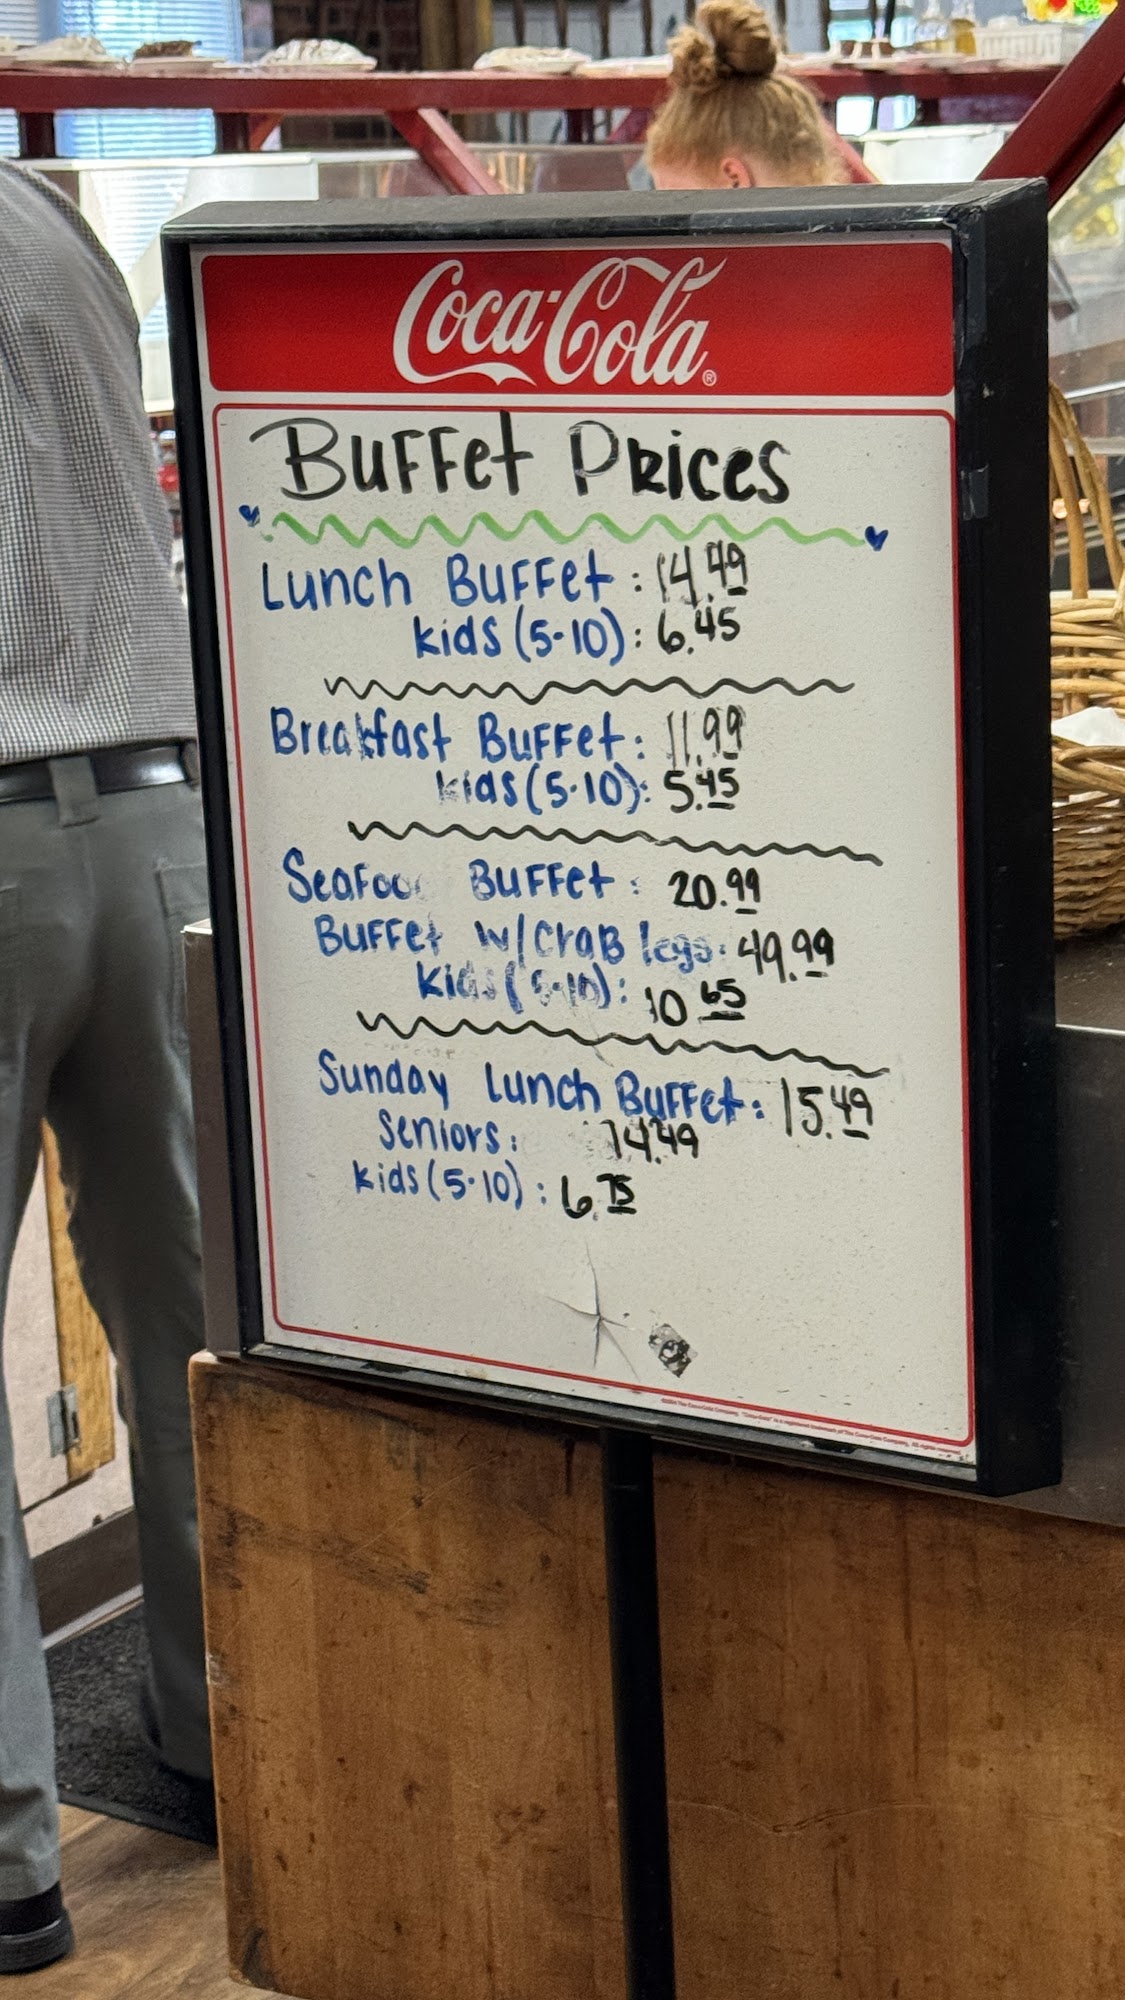 Coca-Cola®
Buffet Prices
Lunch Buffet: 14.49
kids (5-10): 6.45
Breakfast Buffet: 11.99
kids (5-10): 5.45
Seafood Buffet: 20.99
Buffet w/ Crab legs: 49.99
kids (5-10): 10.65
Sunday Lunch Buffet: 15.49
Seniors: 14.49
kids (5-10): 6.75